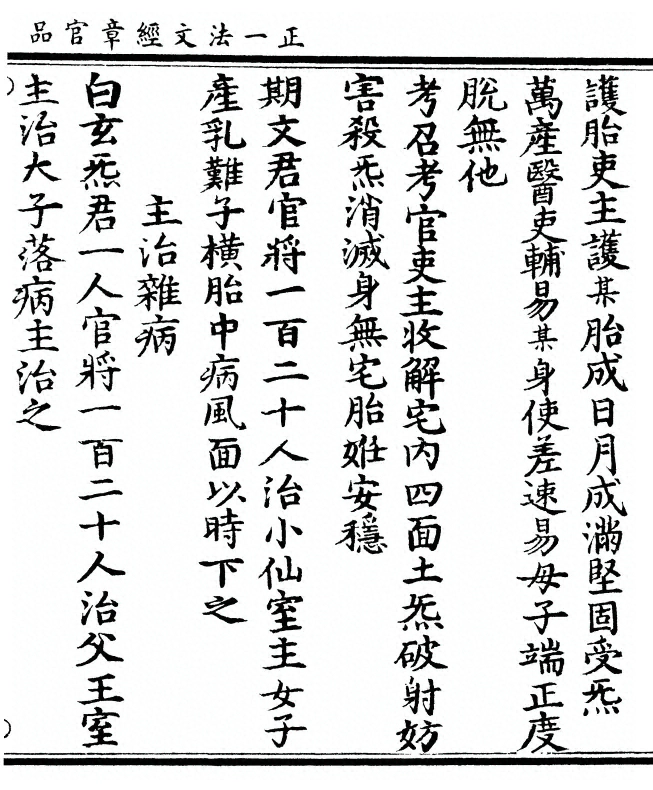 正一法文經章官品
護胎吏主護某胎成日月成滿堅固受炁
萬產醫吏輔易某身使差速易母子端正度
脫無他
考召考官吏主收解宅內四面土炁破射妨
害殺炁消滅身無宅胎妊安穩
期文君官將一百二十人治小仙室主女子
產乳難子橫胎中病風面以時下之
主治雜病
白玄炁君一人官將一百二十人治父王室
主治大子落病主治之